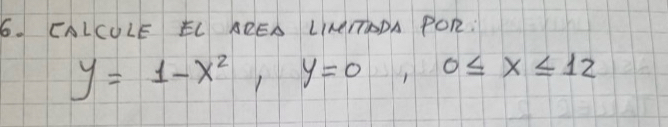 6. CALCULE EL AREA LIMITADA POR:
y = 1-x² , y=0 , 0 ≤ x ≤ 12